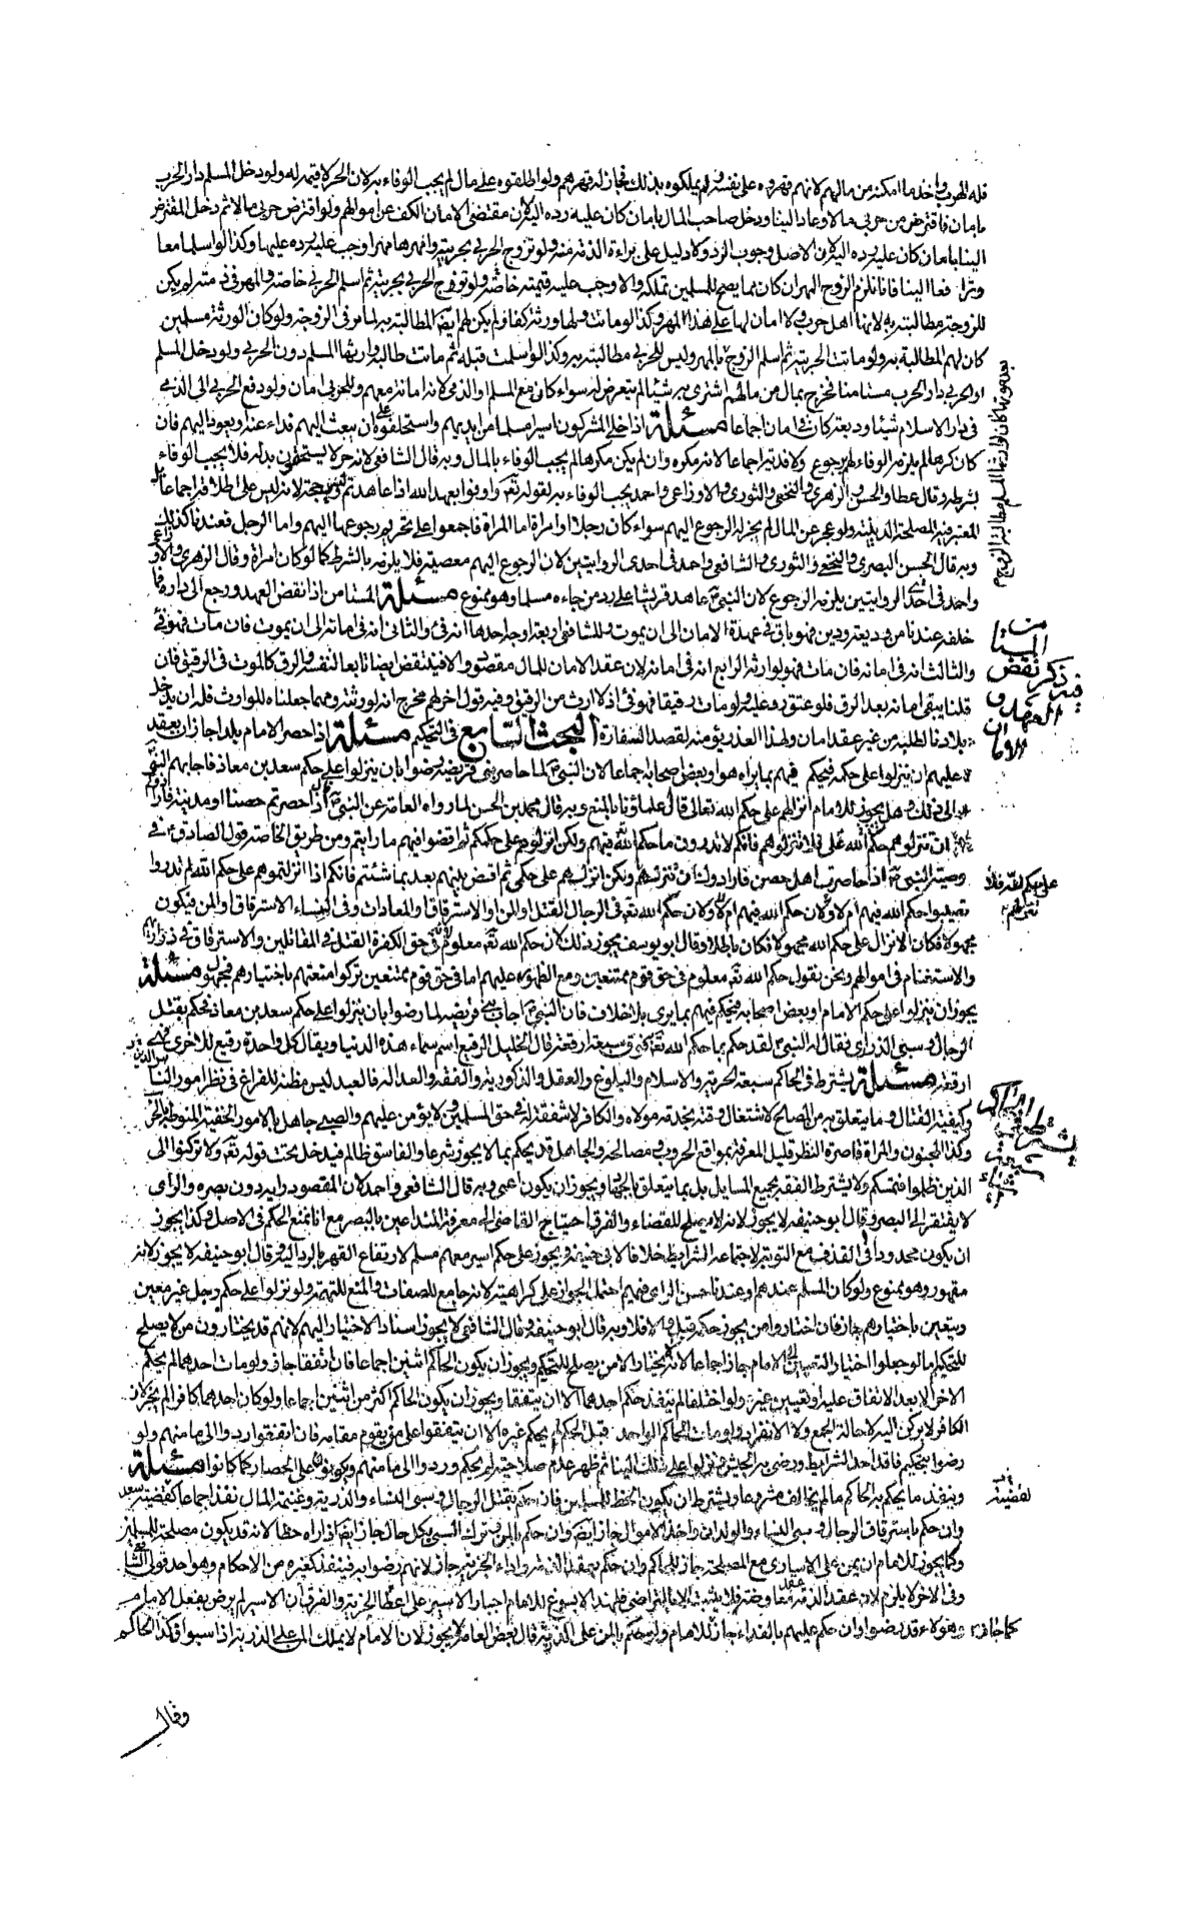 فله الهرب واخذ ما امكنه من مالهم لانهم قهروه على نفسه ولم يملكوه بذلك فجاز له قهرهم ولو اطلقوه على مال لم يجب الوفاء به لان الحر لا قيمة له ولو دخل المسلم دار الحرب
بامان فاقترض من حربي مالا وعاد الينا ودخل صاحب المال بامان كان عليه رده اليه لان مقتضى الامان الكف عن اموالهم ولو اقترض حربي مالا ثم دخل المقترض
الينا بامان كان عليه رده اليه لان الاصل وجوب الرد ولا دليل على براءة الذمة منه ولو تزوج الحربي بحربية وامهرها مهرا وجب عليه رده عليها وكذا لو اسلما معا
وترافعا الينا فانا نلزم الزوج المهر ان كان مما يصح للمسلمين تملكه والا وجب عليه قيمته خاصة ولو تزوج الحربي بحربية ثم اسلم الحربي خاصة والمهر في ذمته لم يكن
للزوجة مطالبته به لانها اهل حرب ولا امان لها على هذا المهر وكذا لو ماتت ولها ورثة كفار لم يكن لهم ايضا المطالبة به لما مر في الزوجة ولو كان الورثة مسلمين
كان لهم المطالبة به ولو ماتت الحربية ثم اسلم الزوج بالمهر وليس للحربي مطالبته به وكذا لو اسلمت قبله ثم ماتت طالبه وارثها المسلم دون الحربي ولو دخل المسلم
او الحربي دار الحرب مستامنا فخرج بمال من مالهم اشترى به شيئا لم يتعرض له سواء كان مع المسلم او الذمي لانه امانة معهم وللحربي امان ولو دفع الحربي الى الذمي
في دار الاسلام شيئا وديعة كان في امان اجماعا مسئلة اذا خلى المشركون اسيرا مسلما من ايديهم واستحلفوه على ان يبعث اليهم فداء عنه او يعود اليهم فان
كان كرها لم يلزمه الوفاء لهم برجوع ولا فدية اجماعا لانه مكره وان لم يكن مكرها لم يجب الوفاء بالمال وبه قال الشافعي لانه حر لا يستحقون بدله فلا يجب الوفاء
بشرطه وقال عطا والحسن والزهري والنخعي والثوري والاوزاعي واحمد يجب الوفاء به لقوله تع واوفوا بعهد الله اذا عاهدتم وليس بحجة لانه ليس على اطلاقه اجماعا بل
المعتبر فيه المصلحة الدينية ولو عجز عن المال لم يجز له الرجوع اليهم سواء كان رجلا او امراة اما المراة فاجمعوا على تحريم رجوعها اليهم واما الرجل فعندنا كذلك
وبه قال الحسن البصري والنخعي والثوري والشافعي واحمد في احدى الروايتين لان الرجوع اليهم معصية فلا يلزمه بالشرط كما لو كان امراة وقال الزهري والاوزاعي
واحمد في احدى الروايتين يلزمه الرجوع لان النبي ص عاهد قريشا على رد من جاءه مسلما وهو ممنوع مسئلة المستامن اذا نقض العهد ورجع الى داره فما
خلفه عندنا من وديعة ودين فهو باق في عهدة الامان الى ان يموت وللشافعي اربعة اوجه احدها انه فئ والثاني انه في امانه الى ان يموت فان مات فهو فئ
والثالث انه في امانه فان مات فهو لوارثه الرابع انه في امانه لان عقد الامان للمال مقصود والا فينتقض ايضا تابعا لنفسه والرق كالموت في الرقيق فان
قلنا يبقى امانه بعد الرق فلو عتق رد عليه ولو مات رقيقا فهو فئ اذ لا ارث من الرقيق وفيه قول اخر لهم مخرج انه لورثته ومهما جعلناه للوارث فله ان يدخل
بلادنا لطلبه من غير عقد امان ولهذا العذر يؤمنه لقصد السفارة البحث السابع في التحكيم مسئلة اذا حصر الامام بلدا جاز ان يعقد
عليهم ان ينزلوا على حكمه فيحكم فيهم بما يراه هو او بعض اصحابه اجماعا لان النبي ص لما حاصر بني قريظة رضوا بان ينزلوا على حكم سعد بن معاذ فاجابهم النبي
الى ذلك وهل يجوز للامام انزالهم على حكم الله تعالى قال علماؤنا بالمنع وبه قال محمد بن الحسن لما رواه العامة عن النبي ص انه قال اذا حاصرتم حصنا او مدينة فارادوكم
ان تنزلوهم على حكم الله فلا تنزلوهم فانكم لا تدرون ما حكم الله فيهم ولكن انزلوهم على حكمكم ثم اقضوا فيهم ما رايتم ومن طريق الخاصة قول الصادق ع في
وصية النبي ص اذا حاصرت اهل حصن فارادوك ان تنزلهم ولكن انزلهم على حكمي ثم اقض فيهم بعد بما شئتم فانكم اذا انزلتموهم على حكم الله لم تدروا
تصيبوا حكم الله فيهم ام لا ولان حكم الله فيهم ام لا ولان حكم الله تع في الرجال القتل او المن او الاسترقاق او المفادات وفي النساء الاسترقاق او المن فيكون
مجهولا فكان الانزال على حكم الله مجهولا فكان باطلا وقال ابو يوسف يجوز ذلك لان حكم الله تع معلوم في حق الكفرة القتل في المقاتلين والاسترقاق في ذراريهم
والاستغنام في اموالهم ونحن نقول حكم الله تع معلوم في حق قوم ممتنعين ومع الظهور عليهم اما في حق قوم ممتنعين تركوا منعتهم باختيارهم فمجهول مسئلة
يجوز ان ينزلوا على حكم الامام او بعض اصحابه فيحكم فيهم بما يرى بلا خلاف فان النبي ص اجاب بني قريظة لما رضوا بان ينزلوا على حكم سعد بن معاذ فحكم بقتل
الرجال وسبي الذراري فقال له النبي ص لقد حكم بما حكم الله تع به فوق سبعة ارقعة قال الخليل الرقيع اسم سماء هذه الدنيا ويقال كل واحدة رقيع للاخرى فهي
ارقعة مسئلة يشترط في الحاكم سبعة الحرية والاسلام والبلوغ والعقل والذكورية والفقه والعدالة فالعبد ليس مظنة للفراغ في نظر امور الناس
وكيفية القتال وما يتعلق به من المصالح لاشتغال وقته بخدمة مولاه والكافر لا شفقة له في حق المسلمين ولا يؤمن عليهم والصبي جاهل بالامور الخفية المنوطة بالحرب
وكذا المجنون والمراة قاصرة النظر قليل المعرفة بمواقع الحروب ومصالحه والجاهل قد يحكم بما لا يجوز شرعا والفاسق ظالم فيدخل تحت قوله تع ولا تركنوا الى
الذين ظلموا فتمسكم ولا يشترط الفقه بجميع المسايل بل بما يتعلق بالجهاد ويجوز ان يكون اعمى وبه قال الشافعي واحمد لان المقصود رايه دون بصره والراى
لا يفتقر الى البصر وقال ابو حنيفة لا يجوز لانه لا يصلح للقضاء والفرق احتياج القاضي الى معرفة المتداعيين بالبصر مع انا نمنع الحكم في الاصل وكذا يجوز
ان يكون محدودا في القذف مع التوبة لاجتماع الشرايط خلافا لابي حنيفة ويجوز على حكم اسير معهم مسلم لارتفاع القهر بالرد اليه وقال ابو حنيفة لا يجوز لانه
مقهور وهو ممنوع ولو كان المسلم عندهم او عندنا حسن الراى فيهم احتمل الجواز على كراهية لانه جامع للصفات والمنع للتهمة ولو نزلوا على حكم رجل غير معين
ويتعين باختيارهم جاز فان اختاروا من يجوز حكمه قبل والا فلا وبه قال ابو حنيفة وقال الشافعي لا يجوز اسناد الاختيار اليهم لانهم قد يختارون من لا يصلح
للتحكيم اما لو جعلوا اختيار التعيين الى الامام جاز اجماعا لانه لا يختار الا من يصلح للتحكيم ويجوز ان يكون الحاكم اثنين اجماعا فان اتفقا جاز ولو مات احدهما لم يحكم
الاخر الا بعد الاتفاق عليه او تعيين غيره ولو اختلفا لم ينفذ حكم احدهما الا ان يتفقا ويجوز ان يكون الحاكم اكثر من اثنين اجماعا ولو كان احدهما كافرا لم يجز لان
الكافر لا يركن اليه لا حالة الجمع ولا الانفراد ولو مات الحاكم الواحد قبل الحكم لم يحكم غيره الا ان يتفقوا على من يقوم مقامه فان لم يتفقوا ردوا الى مامنهم ولو
رضوا بتحكيم فاقد احد الشرايط ورضي به الجيش ونزلوا على ذلك الينا ثم ظهر عدم صلاحيته لم يحكم وردوا الى مامنهم ويكونون على الحصار كما كانوا مسئلة
وينفذ ما يحكم به الحاكم ما لم يخالف مشروعا ويشترط ان يكون الحظ للمسلمين فان حكم بقتل الرجال وسبي النساء والذرية وغنيمة المال نفذ اجماعا كقضية سعد
وان حكم باسترقاق الرجال وسبي النساء والولدان واخذ الاموال جاز ايضا وان حكم بالمن وترك السبي بكل حال جاز ايضا اذا راه حظا لانه قد يكون مصلحة للمسلمين
وكما يجوز للامام ان يمن على الاسارى مع المصلحة جاز للحاكم وان حكم بعقد الذمة واداء الجزية جاز لانهم رضوا به فينفذ كغيره من الاحكام وهو احد قولي الشافعي
وفي الاخر لا يلزم لان عقد الذمة عقد معاوضة فلا يثبت الا بالتراضي فلهذا لا يسوغ للامام اجبار الاسير على اعطاء الجزية والفرق ان الاسير لم يرض بفعل الامام
وهؤلاء قد رضوا وان حكم عليهم بالفداء جاز للامام ولو حكم بالمن على الذرية قال بعض العامة لا يجوز لان الامام لا يملك المن على الذرية اذا سبوا فكذا الحاكم
وقال
المستامن
فيه ذكر نقض
العهد و
الامان
على حكم الله فلا
تنزلهم
لقضية
كما جاز